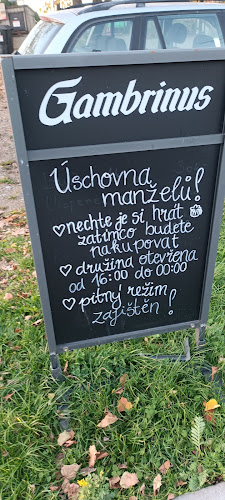 Gambrinus
Úschovna
manželů!
♡ nechte je si hrát
zatímco budete
nakupovat
♡ družina otevřena
od 16:00 do 00:00
♡ pitný režim
zajištěn!